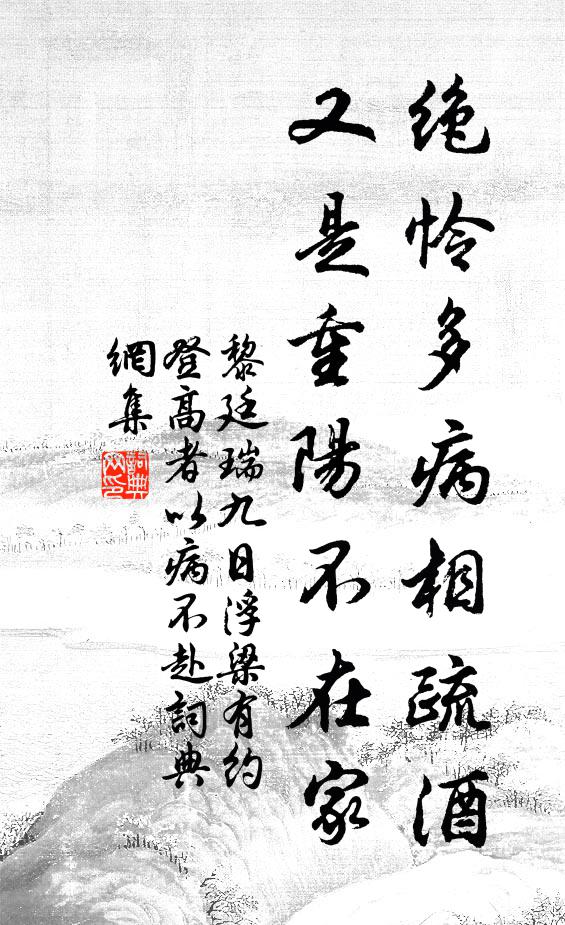 絶憐多病相疏酒
又是重陽不在家
黎廷瑞九日浮梁有約
登高者以病不赴詞典
網集
詞典網印